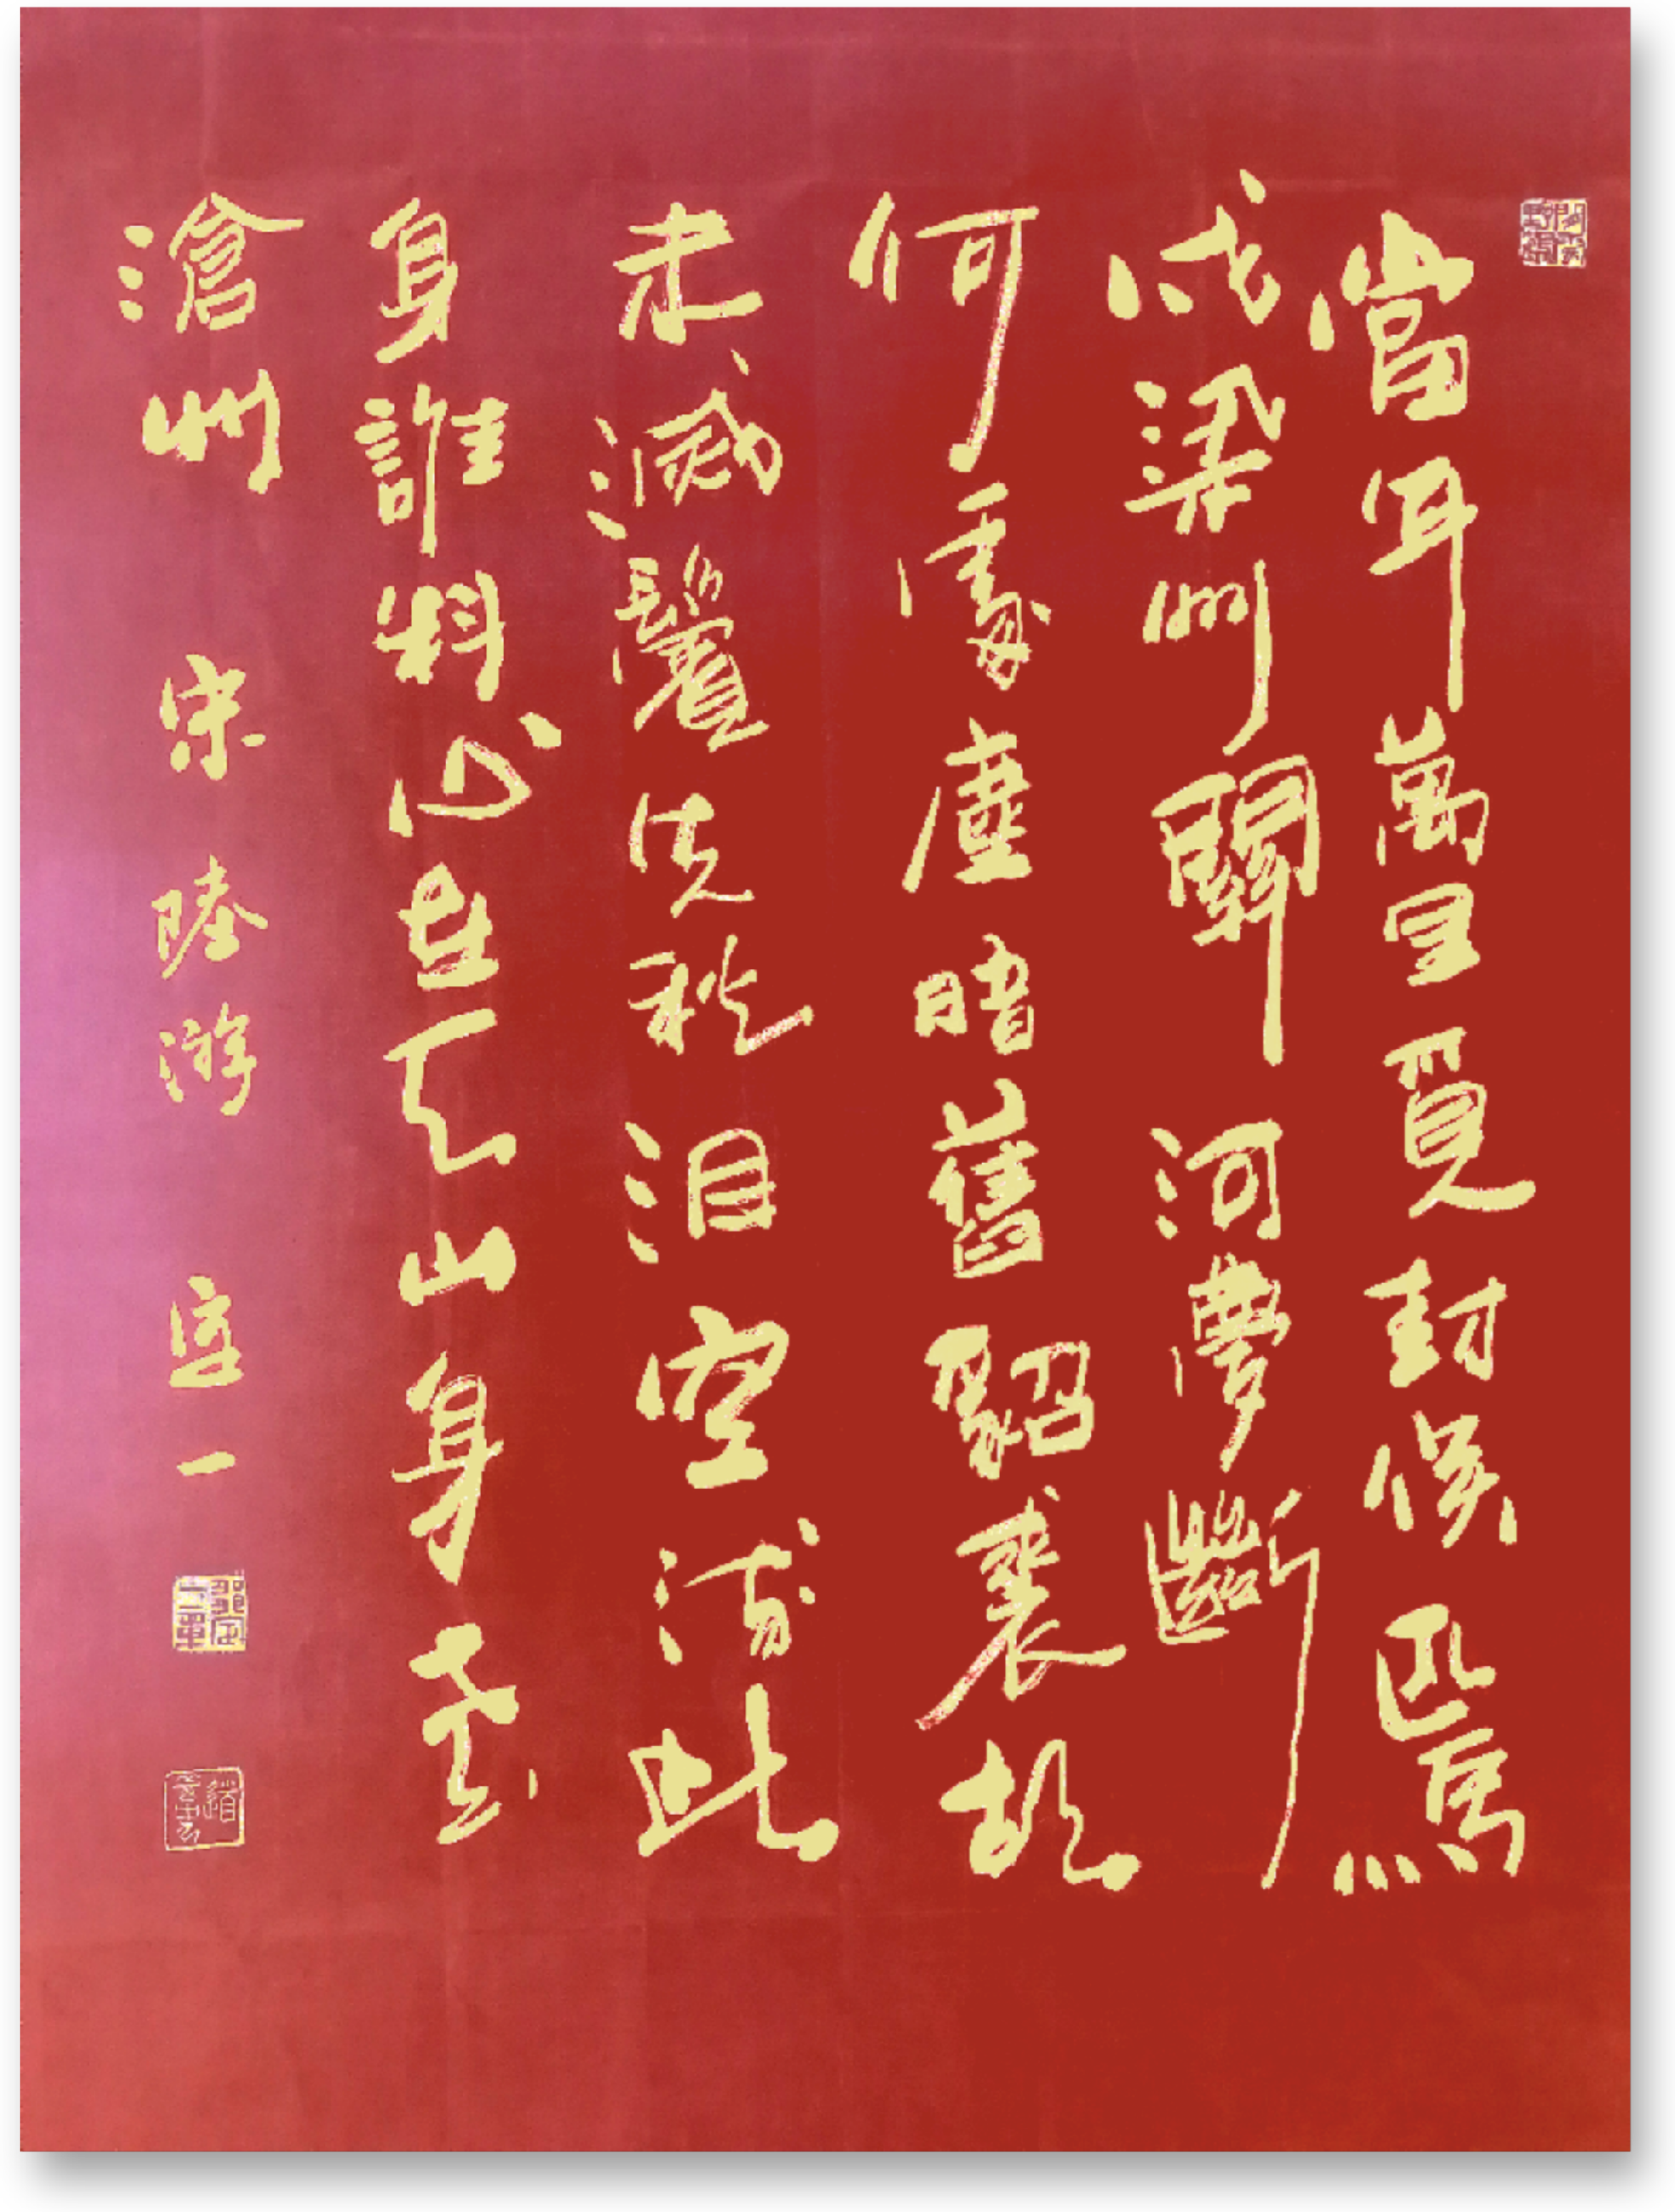 當年萬里覓封侯匹馬
戍梁州關河夢斷
何處塵暗舊貂裘胡
未滅鬢先秋泪空流此
身誰料心在天山身老
滄州 宋陸游 定一